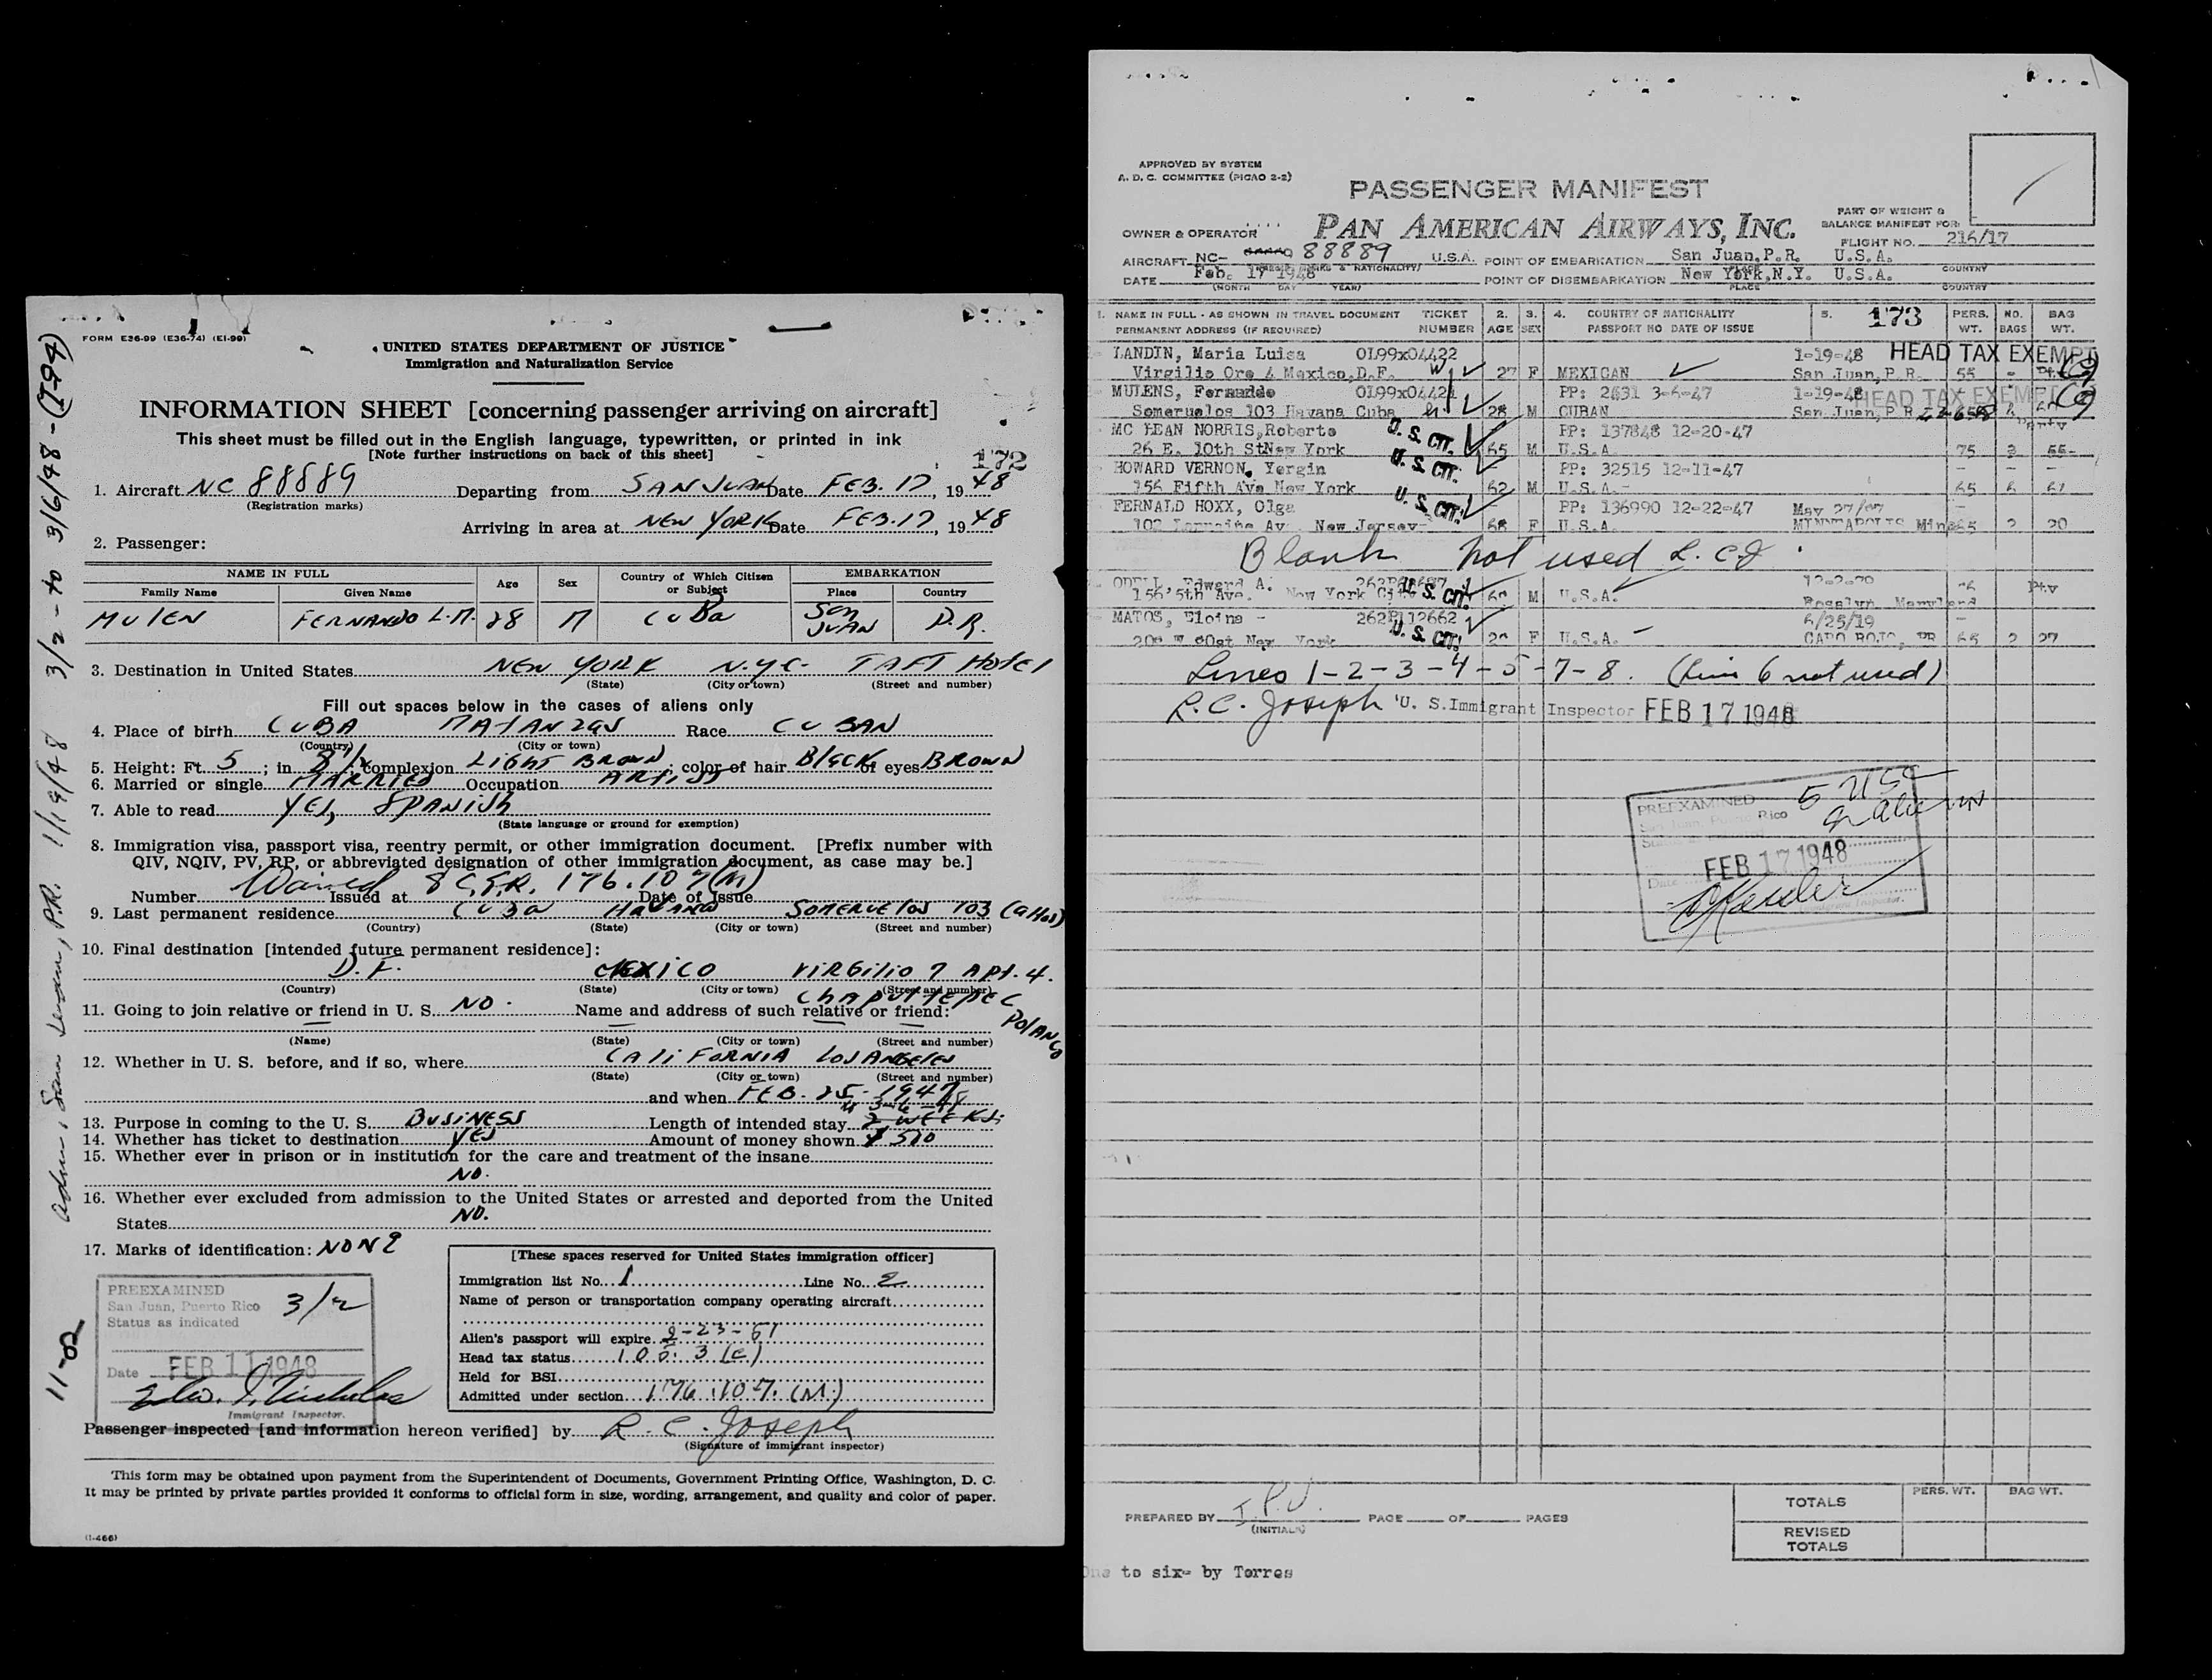 FORM E36-99 (E36-74) (EI-99)
UNITED STATES DEPARTMENT OF JUSTICE
Immigration and Naturalization Service
INFORMATION SHEET [concerning passenger arriving on aircraft]
This sheet must be filled out in the English language, typewritten, or printed in ink
[Note further instructions on back of this sheet]
172
1. Aircraft NC 88889 Departing from SAN JUAN Date FEB. 17, 1948
(Registration marks)
Arriving in area at NEW YORK Date FEB. 17, 1948
2. Passenger:
NAME IN FULL Age Sex Country of Which Citizen or Subject EMBARKATION
Family Name Given Name Place Country
MULEN FERNANDO L.M. 28 M CUBA SAN JUAN P.R.
3. Destination in United States NEW YORK N.Y.C. TAFT HOTEL
(State) (City or town) (Street and number)
Fill out spaces below in the cases of aliens only
4. Place of birth CUBA MATANZAS Race CUBAN
(Country) (City or town)
5. Height: Ft. 5; in. 8 1/2; complexion LIGHT BROWN; color of hair BLACK of eyes BROWN
6. Married or single MARRIED Occupation ARTIST
7. Able to read YES, SPANISH
(State language or ground for exemption)
8. Immigration visa, passport visa, reentry permit, or other immigration document. [Prefix number with
QIV, NQIV, PV, RP, or abbreviated designation of other immigration document, as case may be.]
Number Waived 8 C.F.R. 176.107(M) Issued at Date of Issue
9. Last permanent residence CUBA HAVANA SOMERUELOS 103 (altos)
(Country) (State) (City or town) (Street and number)
10. Final destination [intended future permanent residence]:
D.F. MEXICO VIRGILIO 7 APT. 4.
(Country) (State) (City or town) (Street and number)
CHAPULTEPEC
POLANCO
11. Going to join relative or friend in U. S. NO. Name and address of such relative or friend:
(Name) (State) (City or town) (Street and number)
12. Whether in U. S. before, and if so, where CALIFORNIA LOS ANGELES
(State) (City or town) (Street and number)
and when FEB. 25- 1947
13. Purpose in coming to the U. S. BUSINESS Length of intended stay 2 WEEKS
14. Whether has ticket to destination YES Amount of money shown $ 500
15. Whether ever in prison or in institution for the care and treatment of the insane
NO.
16. Whether ever excluded from admission to the United States or arrested and deported from the United
States NO.
17. Marks of identification: NONE
[These spaces reserved for United States immigration officer]
Immigration list No. 1 Line No. 2
Name of person or transportation company operating aircraft
Alien's passport will expire 2-23-51
Head tax status 105.3(c)
Held for BSI
Admitted under section 176.107.(M)
PREEXAMINED
San Juan, Puerto Rico 3/2
Status as indicated
Date FEB 11 1948
Immigrant Inspector.
Passenger inspected [and information hereon verified] by R. C. Joseph
(Signature of immigrant inspector)
This form may be obtained upon payment from the Superintendent of Documents, Government Printing Office, Washington, D. C.
It may be printed by private parties provided it conforms to official form in size, wording, arrangement, and quality and color of paper.
(I-466)
Adm. San Juan, P.R. 1/19/48 3/2 - to 3/6/48 - (I-94)
APPROVED BY SYSTEM
A. D. C. COMMITTEE (PICAO 2-2)
PASSENGER MANIFEST
OWNER & OPERATOR PAN AMERICAN AIRWAYS, INC.
PART OF WEIGHT & BALANCE MANIFEST FOR:
FLIGHT NO. 216/17
AIRCRAFT NC- 88889 U.S.A. POINT OF EMBARKATION San Juan, P.R. U.S.A.
DATE Feb. 17 1948 POINT OF DISEMBARKATION New York, N.Y. U.S.A.
(MONTH DAY YEAR) PLACE COUNTRY
1. NAME IN FULL - AS SHOWN IN TRAVEL DOCUMENT TICKET 2. 3. 4. COUNTRY OF NATIONALITY 5. 173 PERS. NO. BAG
PERMANENT ADDRESS (IF REQUIRED) NUMBER AGE SEX PASSPORT NO DATE OF ISSUE WT. BAGS WT.
LANDIN, Maria Luisa 0199x04422 1-19-48 HEAD TAX EXEMPT
Virgilio Ore 4 Mexico, D.F. 27 F MEXICAN San Juan, P.R. 55 -
MULENS, Fernando 0199x04421 PP: 2631 3-6-47 1-19-48 HEAD TAX EXEMPT
Someruelos 103 Havana Cuba 28 M CUBAN San Juan, P.R.
MC LEAN NORRIS, Roberto U. S. CIT. PP: 137848 12-20-47
26 E. 10th St New York 65 M U.S.A. 75 3 55-
HOWARD VERNON, Yergin U. S. CIT. PP: 32515 12-11-47 - - -
156 Fifth Ave New York 62 M U.S.A.- 65 6 61
FERNALD HOXX, Olga U. S. CIT. PP: 136990 12-22-47 - - -
102 Lorraine Av. New Jersey- 68 F U.S.A. MINNEAPOLIS Minn 65 2 20
Blank not used R. C. J.
ODELL, Edward A. U. S. CIT. 12-2-79
156 5th Ave. New York City M U.S.A. Rosalyn, Maryland
MATOS, Eloina - 262P112662 6/25/19
New York U. S. CIT. F U.S.A. CABO ROJO, PR 65 2 27
Lines 1-2-3-4-5-7-8. (Line 6 not used)
R. C. Joseph U. S. Immigrant Inspector FEB 17 1948
PREEXAMINED 5 USC
San Juan, Puerto Rico 2 aliens
Date FEB 17 1948
Immigrant Inspector.
PREPARED BY I.P.V. PAGE OF PAGES
(INITIALS)
TOTALS PERS. WT. BAG WT.
REVISED TOTALS
One to six- by Torres